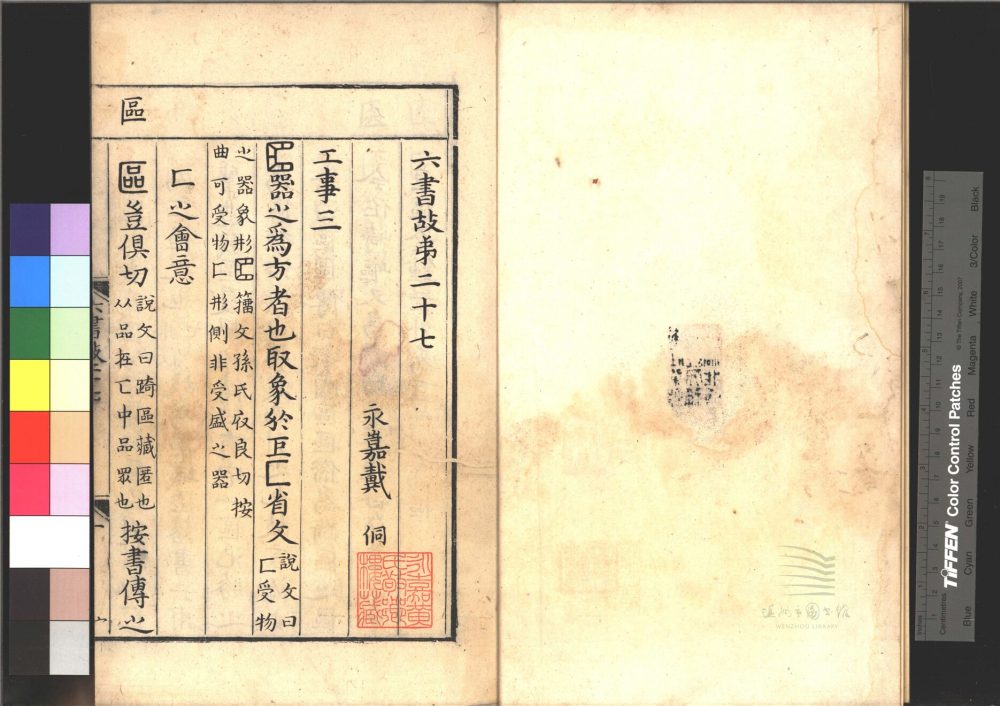 六書故弟二十七
永嘉戴 侗
永嘉黃
氏敬鄉
樓藏
工事三
器之為方者也取象於匚省文
說文曰
匚受物
之器象形籀文孫氏府良切按
曲可受物匚形側非受盛之器
匚之會意
區
區豈俱切
說文曰踦區藏匿也
从品在匸中品眾也
按書傳之
温州市图书馆
WENZHOU LIBRARY
TIFFEN Color Control Patches
© The Tiffen Company, 2007
Blue Cyan Green Yellow Red Magenta White 3/Color Black
Inches
Centimetres